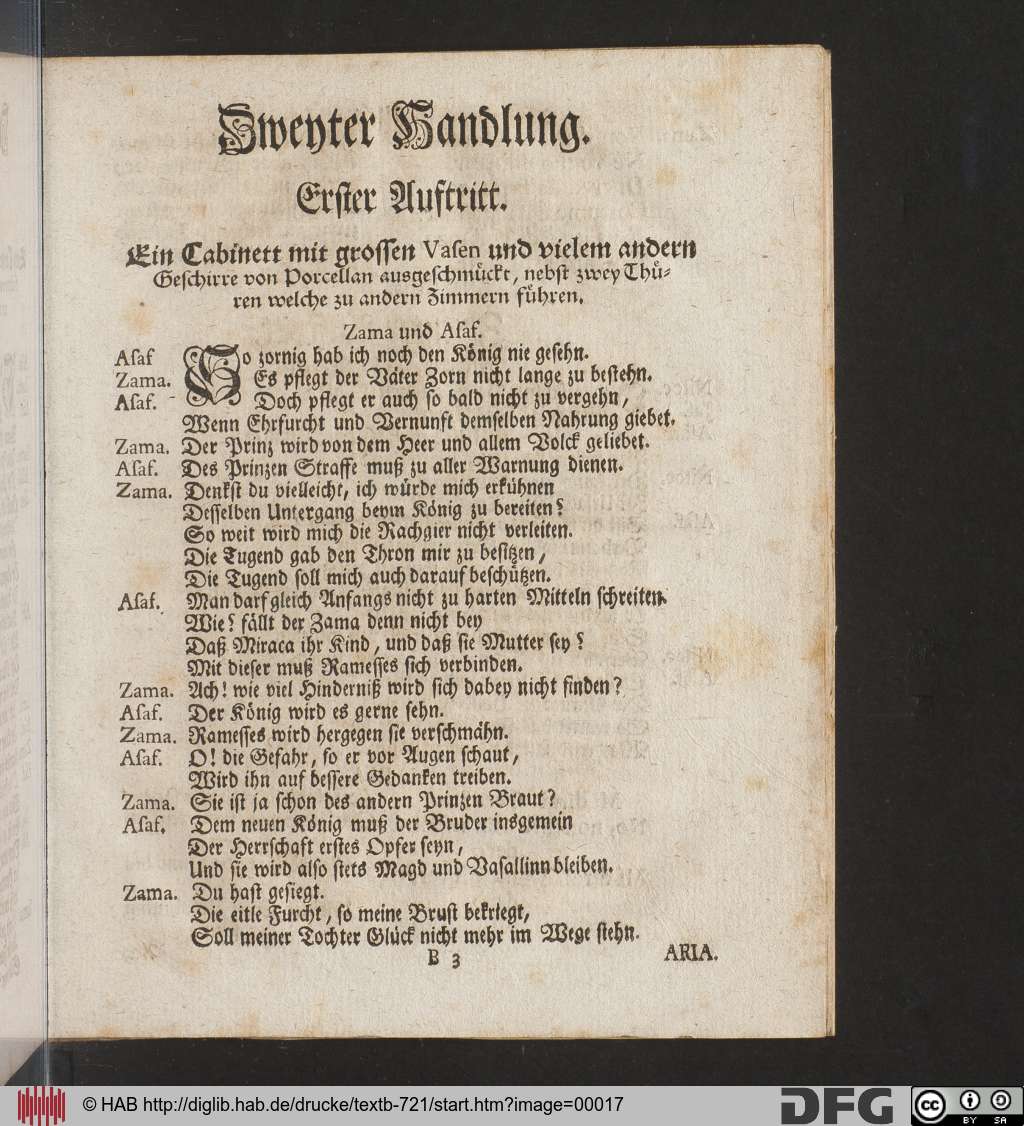 Zweyter Handlung.
Erster Auftritt.
Ein Cabinett mit grossen Vasen und vielem andern
Geschirre von Porcellan ausgeschmückt, nebst zwey Thü-
ren welche zu andern Zimmern führen.
Zama und Asaf.
Asaf So zornig hab ich noch den König nie gesehn.
Zama. Es pflegt der Väter Zorn nicht lange zu bestehn.
Asaf. Doch pflegt er auch so bald nicht zu vergehn,
Wenn Ehrfurcht und Vernunft demselben Nahrung giebet.
Zama. Der Prinz wird von dem Heer und allem Volck geliebet.
Asaf. Des Prinzen Straffe muß zu aller Warnung dienen.
Zama. Denkst du vielleicht, ich würde mich erkühnen
Desselben Untergang beym König zu bereiten?
So weit wird mich die Rachgier nicht verleiten.
Die Tugend gab den Thron mir zu besitzen,
Die Tugend soll mich auch darauf beschützen.
Asaf. Man darf gleich Anfangs nicht zu harten Mitteln schreiten.
Wie? fällt der Zama denn nicht bey
Daß Miraca ihr Kind, und daß sie Mutter sey?
Mit dieser muß Ramesses sich verbinden.
Zama. Ach! wie viel Hinderniß wird sich dabey nicht finden?
Asaf. Der König wird es gerne sehn.
Zama. Ramesses wird hergegen sie verschmähn.
Asaf. O! die Gefahr, so er vor Augen schaut,
Wird ihn auf bessere Gedanken treiben.
Zama. Sie ist ja schon des andern Prinzen Braut?
Asaf. Dem neuen König muß der Bruder insgemein
Der Herrschaft erstes Opfer seyn,
Und sie wird also stets Magd und Vasallinn bleiben.
Zama. Du hast gesiegt.
Die eitle Furcht, so meine Brust bekriegt,
Soll meiner Tochter Glück nicht mehr im Wege stehn.
B 3 ARIA.
© HAB http://diglib.hab.de/drucke/textb-721/start.htm?image=00017
DFG
cc BY SA